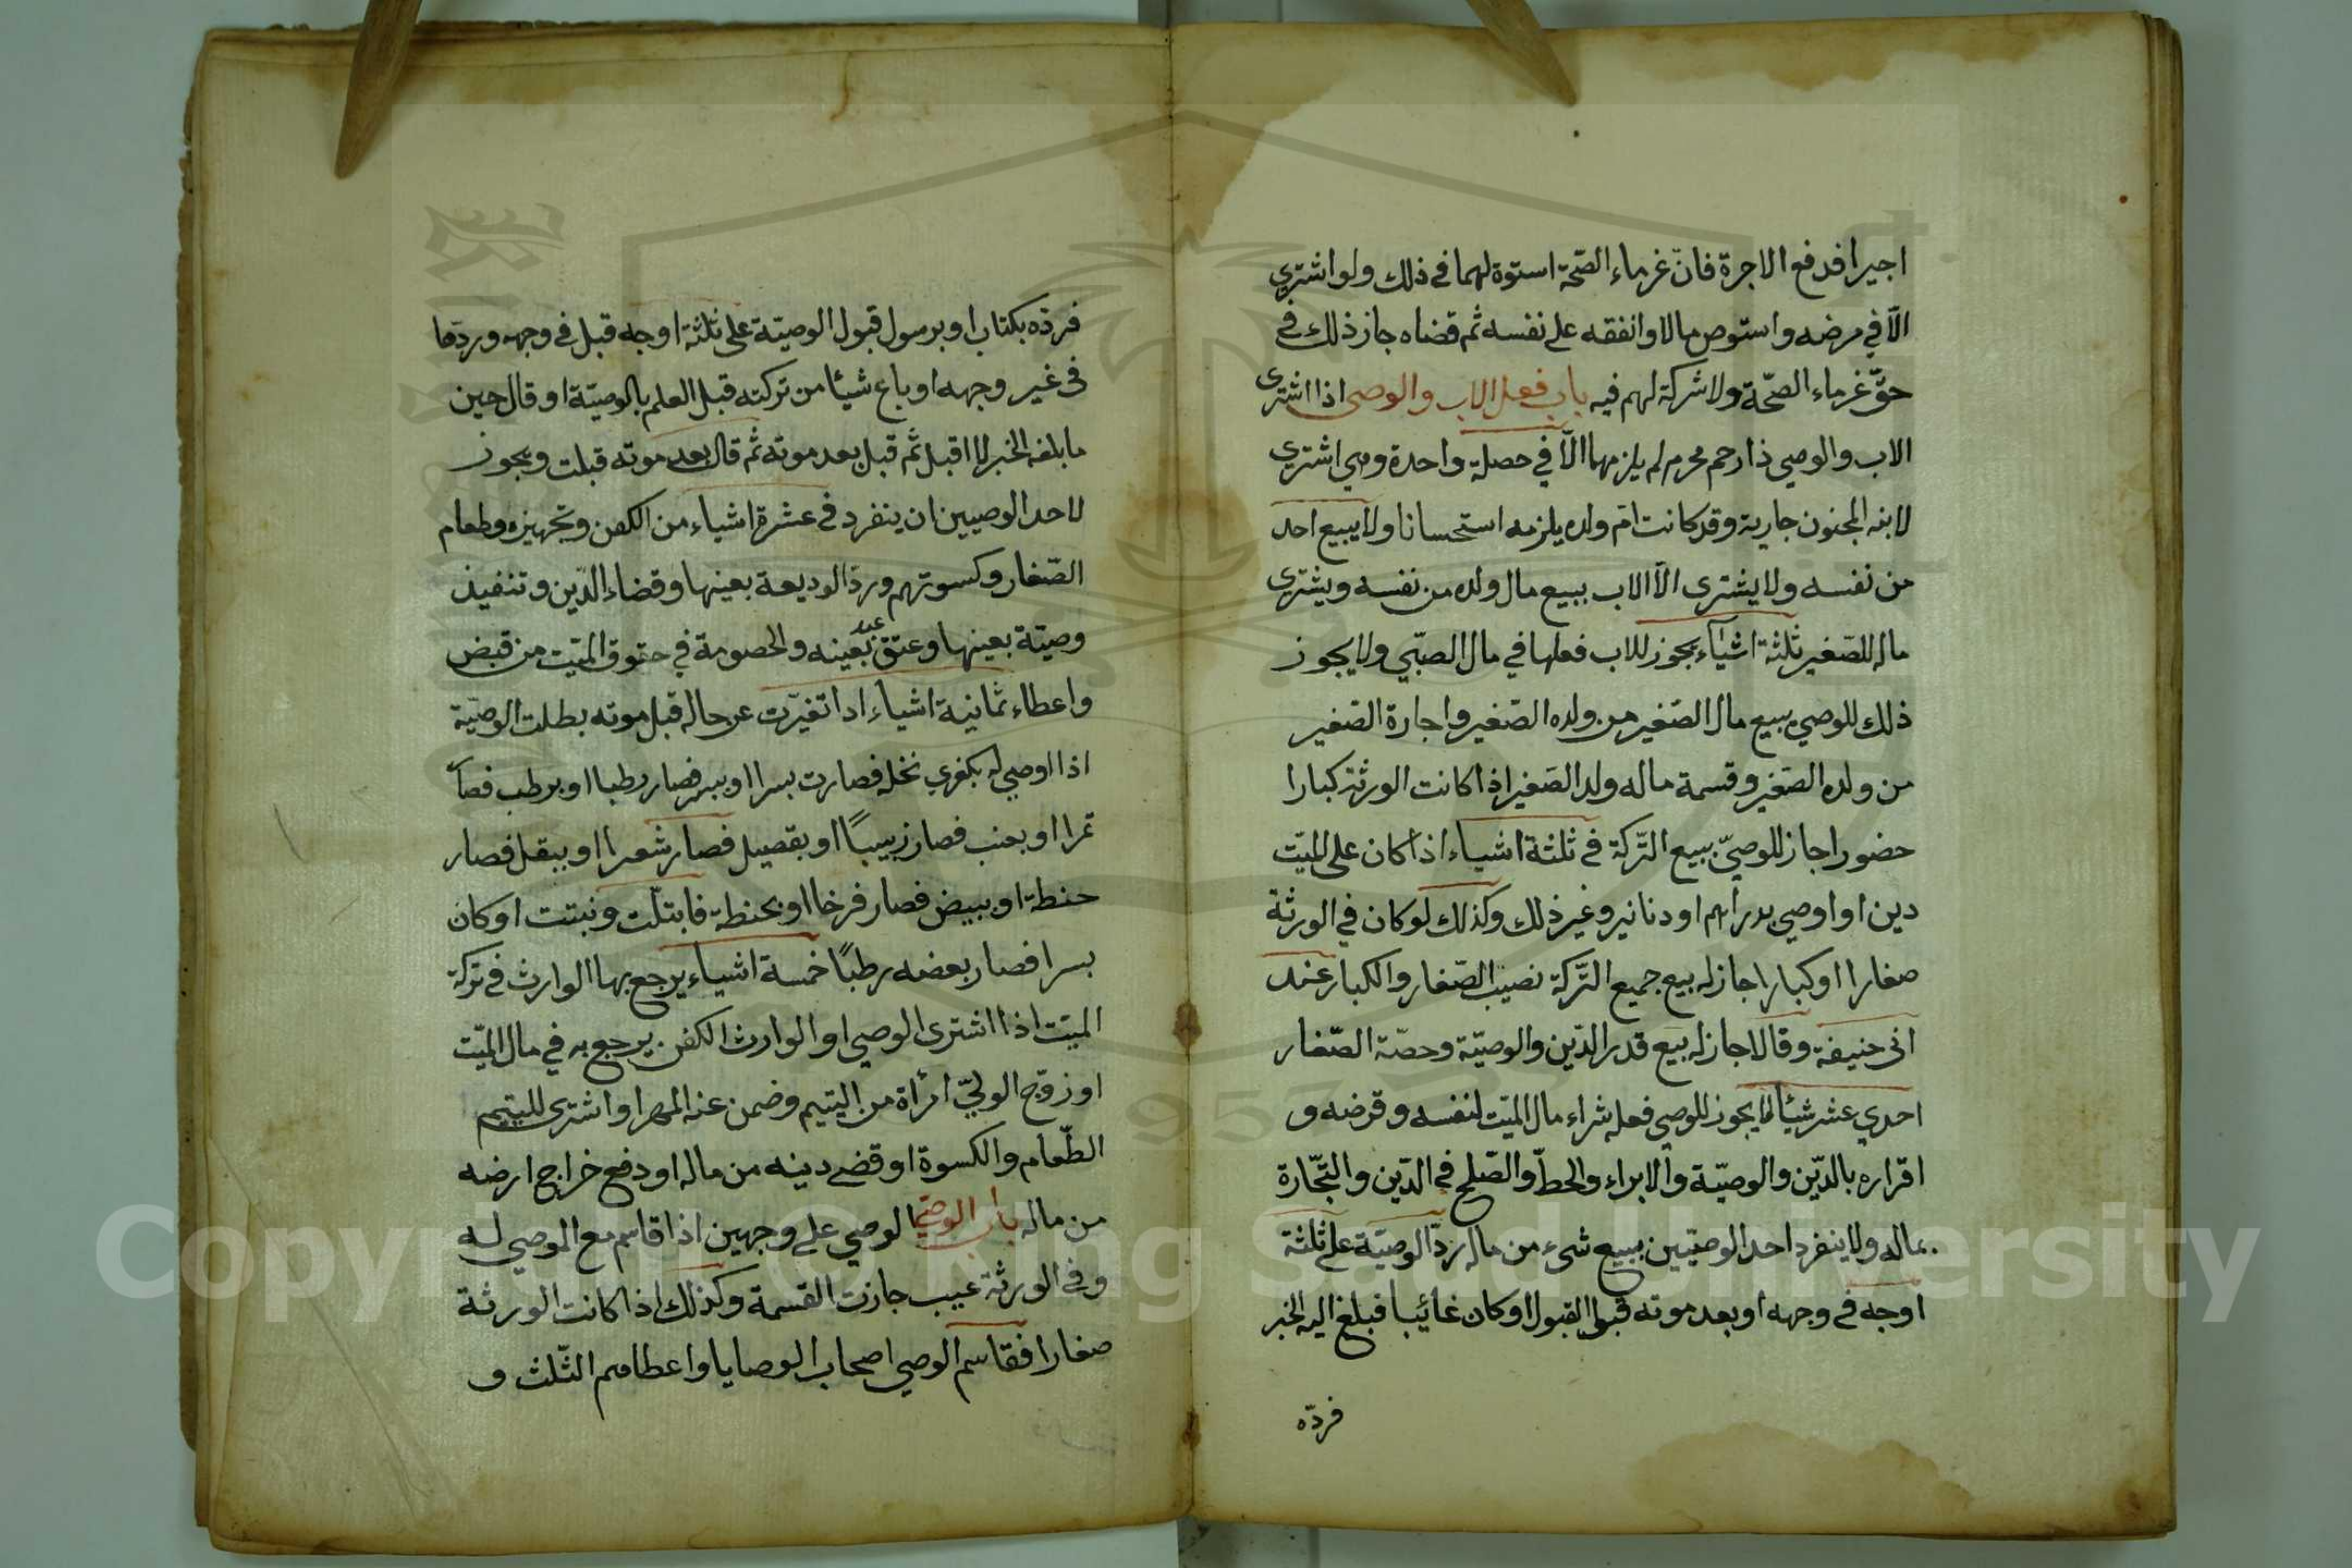 اجيرا فدفع الاجرة فان غرماء الصّحة استوة لهما في ذلك ولو اشتري
الّا في مرضه واستوص مالا وانفقه على نفسه ثم قضاه جاز ذلك في
حقّ غرماء الصّحّة ولا شركة لهم فيه باب فعل الاب والوصى اذا اشترى
الاب والوصي ذا رحم محرم لم يلزمهما الّا في حصلة واحدة وهي اشتري
لابنه المجنون جارية وقد كانت امّ ولده يلزمه استحسانا ولا يبيع احد
من نفسه ولا يشترى الّا الاب يبيع مال ولده من نفسه ويشتري
ماله للصّغير ثلثة اشياء يجوز للاب فعلها في مال الصبّي ولا يجوز
ذلك للوصي بيع مال الصّغير من ولده الصّغير واجارة الصّغير
من ولده الصّغير وقسمة ماله ولد الصّغير اذا كانت الورثة كبارا
حضورا جاز للوصيّ بيع التّركة في ثلثة اشياء اذا كان على الميّت
دين او اوصي بدراهم او دنانير وغير ذلك وكذلك لو كان في الورثة
صغارا او كبارا جاز له بيع جميع التّركة نصيب الصّغار والكبار عند
ابى حنيفة وقالا جاز له بيع قدر الدّين والوصيّة وحصّة الصّغار
احدي عشر شيئا لا يجوز للوصي فعله شراء مال الميّت لنفسه وقرضه و
اقراره بالدّين والوصيّة والابراء والحطّ والصّلح في الدّين والتّجّارة
بماله ولا ينفرد احد الوصيّين ببيع شيء من ماله ردّ الوصيّة على ثلثة
اوجه في وجهه او بعد موته قبل القبول او كان غائبا فبلغ اليه الخبر
فردّه
فردّه بكتاب او برسول قبول الوصيّة على ثلثة اوجه قبل في وجهه وردّها
في غير وجهه او باع شيئا من تركته قبل العلم بالوصيّة او قال حين
ما بلغه الخبر لا اقبل ثم قبل بعد موته ثم قال بعد موته قبلت ويجوز
لاحد الوصيين ان ينفرد في عشرة اشياء من الكفن وتجهيزه وطعام
الصّغار وكسوتهم وردّ الوديعة بعينها وقضاء الدّين وتنفيذ
وصيّة بعينها وعتق عبد بعينه والخصومة في حقوق الميّت من قبض
واعطاء ثمانية اشياء اذا تغيّرت عن حاله قبل موته بطلت الوصيّة
اذا اوصي له بكفري نخله فصارت بسرا او ببسر فصار رطبا او برطب فصا
تمرا او بعنب فصار زبيبًا او بقصيل فصار شعيرا او ببقل فصار
حنطة او ببيض فصار فرخا او بحنطة فابتلّت ونبتت او كان
بسرا فصار بعضه رطبًا خمسة اشياء يرجع بها الوارث في تركة
الميّت اذا اشترى الوصي او الوارث الكفن يرجع به في مال الميّت
او زوّج الوليّ امرأة من اليتيم وضمن عنه المهر او اشترى لليتيم
الطّعام والكسوة او قضى دينه من ماله او دفع خراج ارضه
من ماله باب الوصيّ الوصي على وجهين اذا قاسم مع الموصي له
وفي الورثة عيب جازت القسمة وكذلك اذا كانت الورثة
صغارا فقاسم الوصي اصحاب الوصايا واعطاهم الثّلث و
Copyright © King Saud University